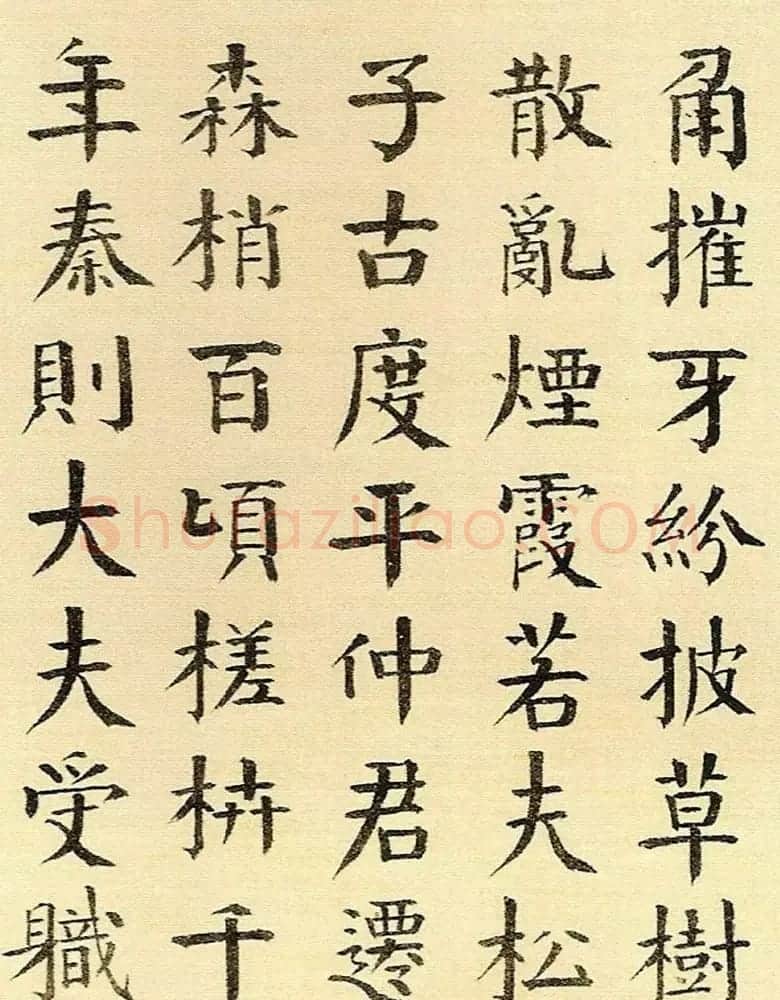 角摧牙紛披草樹
散亂煙霞若夫松
子古度平仲君遷
森梢百頃槎枿千
年秦則大夫受軄
Shufaziliao.COM